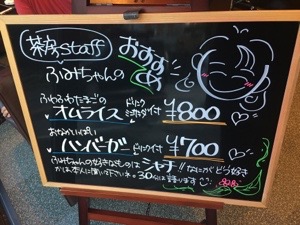 茶房staff
おすすめ
ふみちゃんの
ふわふわたまごの
オムライス ドリンク ミニサラダ付 ¥800
おなかいっぱい
ハンバーガー ドリンク付 ¥700
ふみちゃんの好きなものは シャチ!! なにがどう好き
かは本人に聞いて下さいネ。30分には